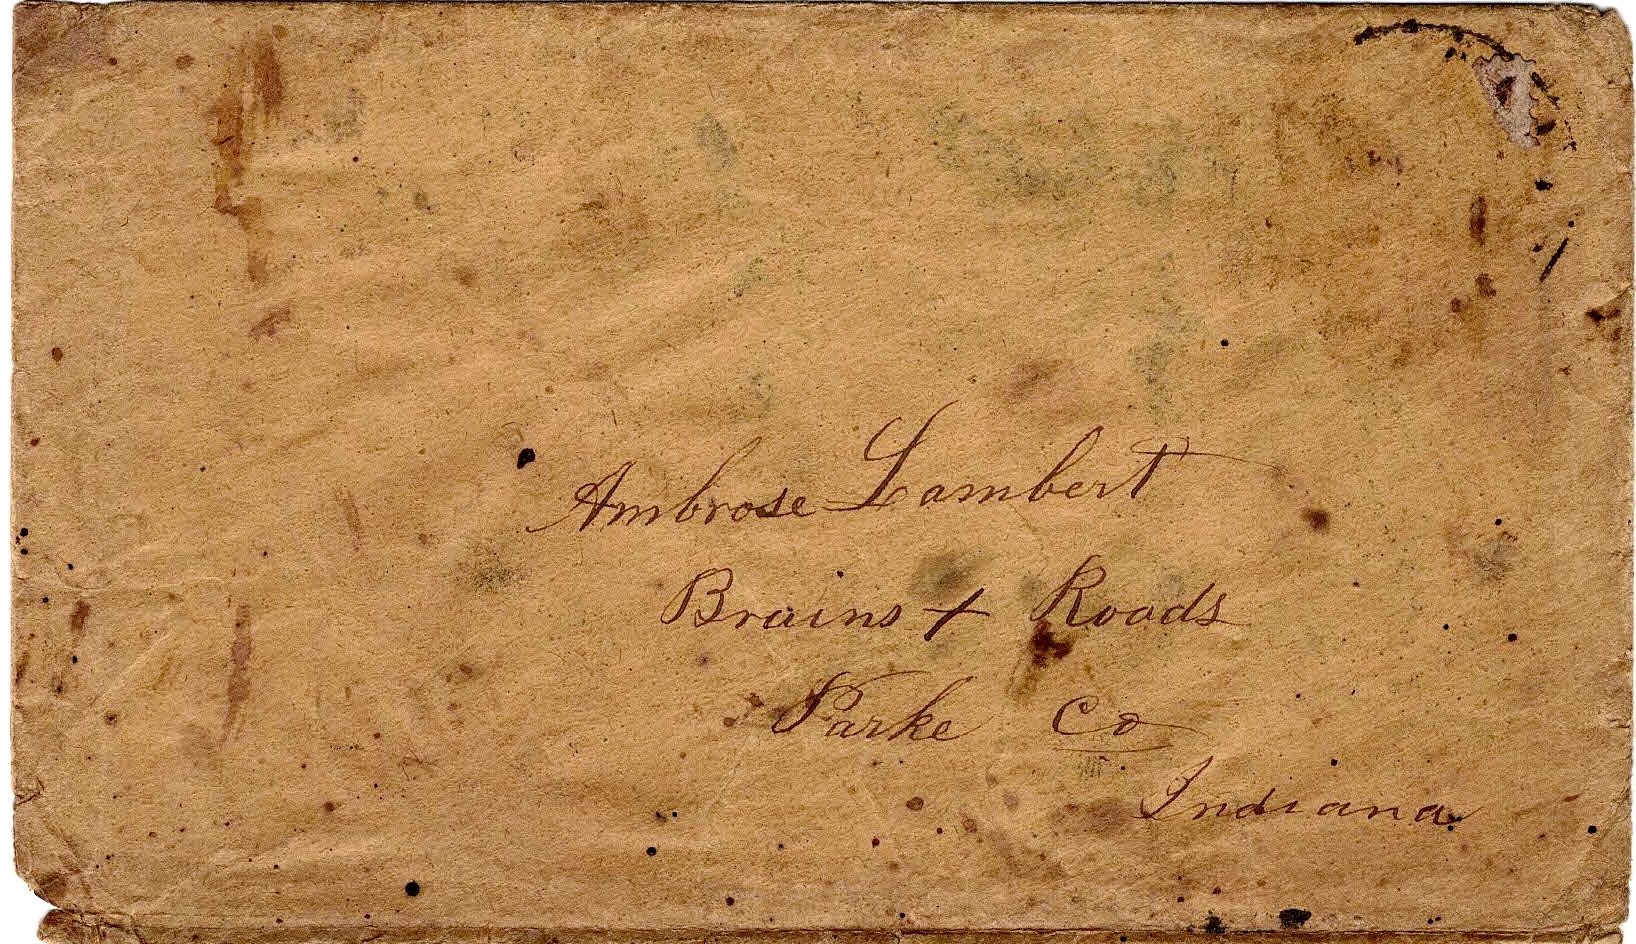 Ambrose Lambert
Brains + Roads
Parke Co
Indiana